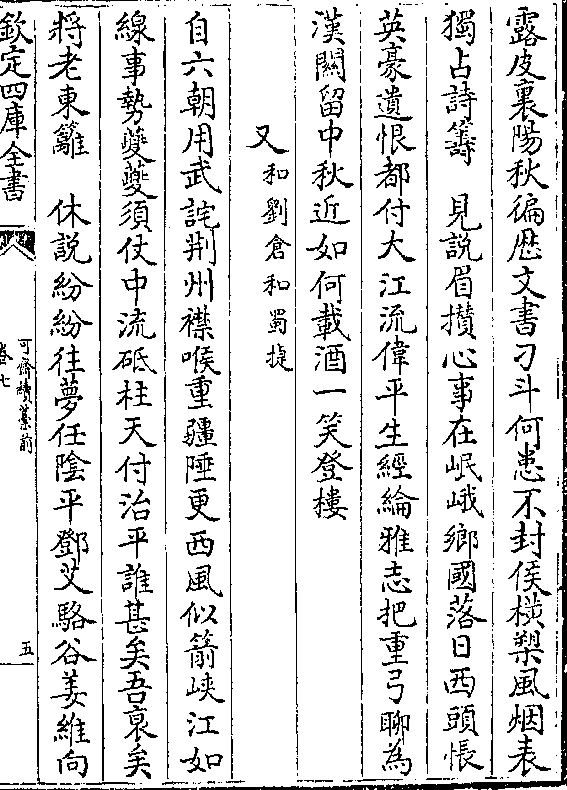 露皮裏陽秋徧歴文書刁斗何患不封侯橫槊風烟表
獨占詩籌　見說眉攢心事在岷峨鄉國落日西頭悵
英豪遺恨都付大江流偉平生經綸雅志把重弓聊為
漢關留中秋近如何載酒一笑登樓
又和劉倉和蜀捷
自六朝用武詫荆州襟喉重疆陲更西風似箭峽江如
線事勢夔夔須仗中流砥柱天付治平誰甚矣吾衰矣
將老東籬　休說紛紛往夢任陰平鄧艾駱谷姜維向
欽定四庫全書
可齋續藁前
卷七
五